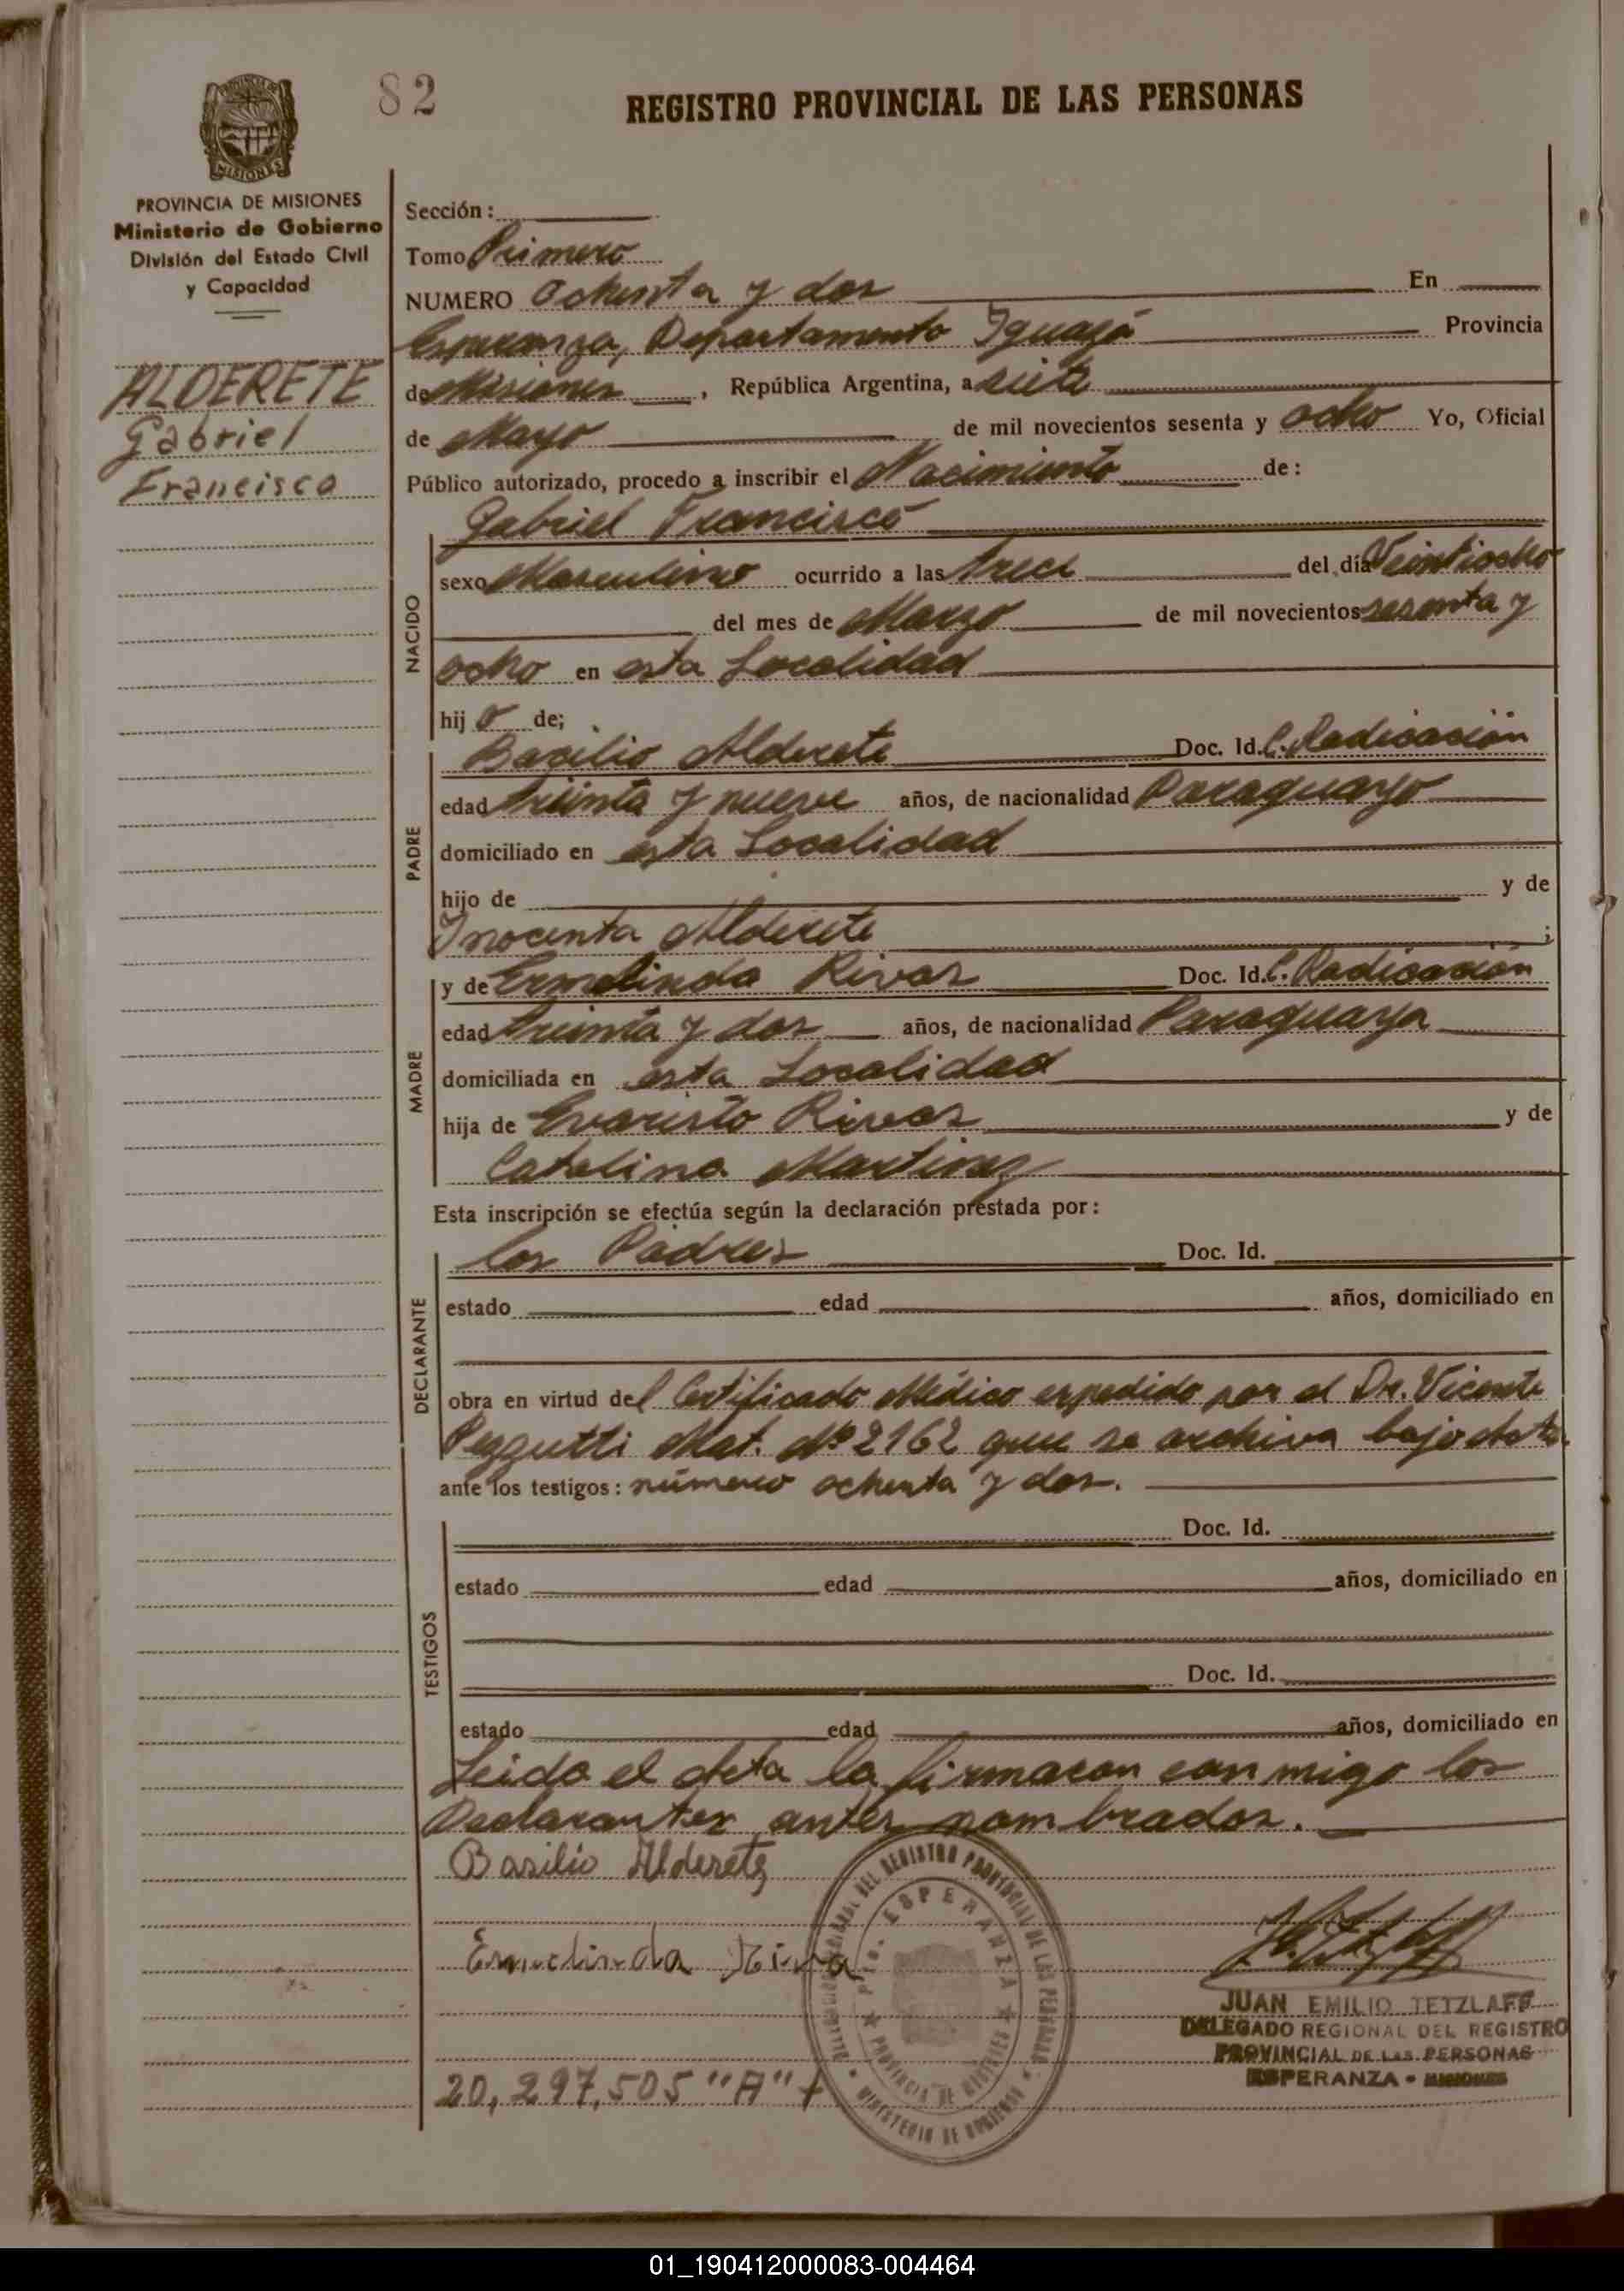 82
REGISTRO PROVINCIAL DE LAS PERSONAS
MISIONES
PROVINCIA DE MISIONES
Ministerio de Gobierno
División del Estado Civil
y Capacidad
ALDERETE
Gabriel
Francisco
Sección:
Tomo Primero
NUMERO Ochenta y dos En
Esperanza, Departamento Iguazú Provincia
de Misiones, República Argentina, a siete
de Mayo de mil novecientos sesenta y ocho Yo, Oficial
Público autorizado, procedo a inscribir el Nacimiento de:
Gabriel Francisco
NACIDO
sexo Masculino ocurrido a las trece del día Veintiocho
del mes de Marzo de mil novecientos sesenta y
ocho en esta Localidad
hij o de;
PADRE
Basilio Alderete Doc. Id. C. Radicación
edad treinta y nueve años, de nacionalidad Paraguayo
domiciliado en esta Localidad
hijo de y de
Inocenta Alderete ;
MADRE
y de Ermelinda Rivas Doc. Id. C. Radicación
edad treinta y dos años, de nacionalidad Paraguaya
domiciliada en esta Localidad
hija de Evaristo Rivas y de
Catalina Martinez
Esta inscripción se efectúa según la declaración prestada por:
DECLARANTE
los Padres Doc. Id.
estado edad años, domiciliado en
obra en virtud del Certificado Médico expedido por el Dr. Vicente
Pezzutti Mat. Nº 2162 que se archiva bajo
ante los testigos: número ochenta y dos.
TESTIGOS
Doc. Id.
estado edad años, domiciliado en
Doc. Id.
estado edad años, domiciliado en
Leida el Acta la firmaron conmigo los
Declarantes antes nombrados.
Basilio Alderete
Ermelinda Riva
DELEGACION REGIONAL DEL REGISTRO PROVINCIAL DE LAS PERSONAS
MINISTERIO DE GOBIERNO
Pto. ESPERANZA
PROVINCIA DE MISIONES
JUAN EMILIO TETZLAFF
DELEGADO REGIONAL DEL REGISTRO
PROVINCIAL DE LAS PERSONAS
ESPERANZA - MISIONES
20,297,505 "A"
01_190412000083-004464